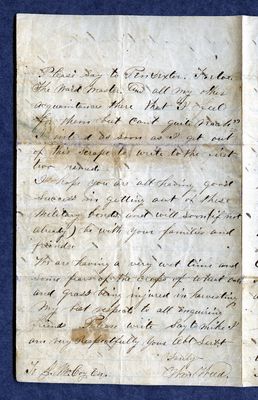 Please Say to
The Ward Master and all my other
acquaintances there that I feel
for them but can't quite reach
intend as soon as I get out
of this scrape to write to the first
two named
I hope you are all having good
success in getting out of these
Military bonds and will soon (if not
already) be with your families and
friends
We are having a very wet time and
some fears of the crops of wheat
and grass being injured in harvesting
My best respects to all enquiring
friends Please write Say to Mike I
am very respectfully your Obt Servt
Reed